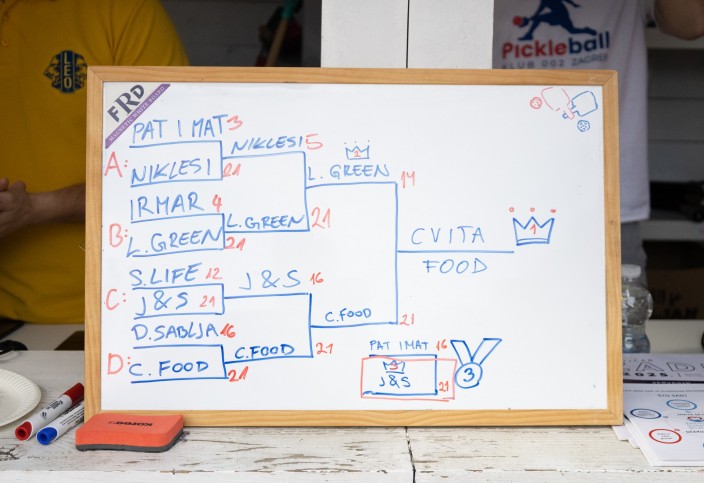 LEO
Pickleball
KLUB 002 ZAGREB
FRD
MAGNETIC WHITE BOARD
A:
PAT I MAT 3
NIKLESI 21
NIKLESI 5
B:
IRMAR 4
L.GREEN 21
L.GREEN 21
1
L. GREEN 14
C:
S.LIFE 12
J&S 21
J&S 16
D:
D.SABLJA 16
C. FOOD 21
C.FOOD 21
C.FOOD 21
CVITA
FOOD
1
PAT I MAT 16
3
J&S 21
3
KORES
2025